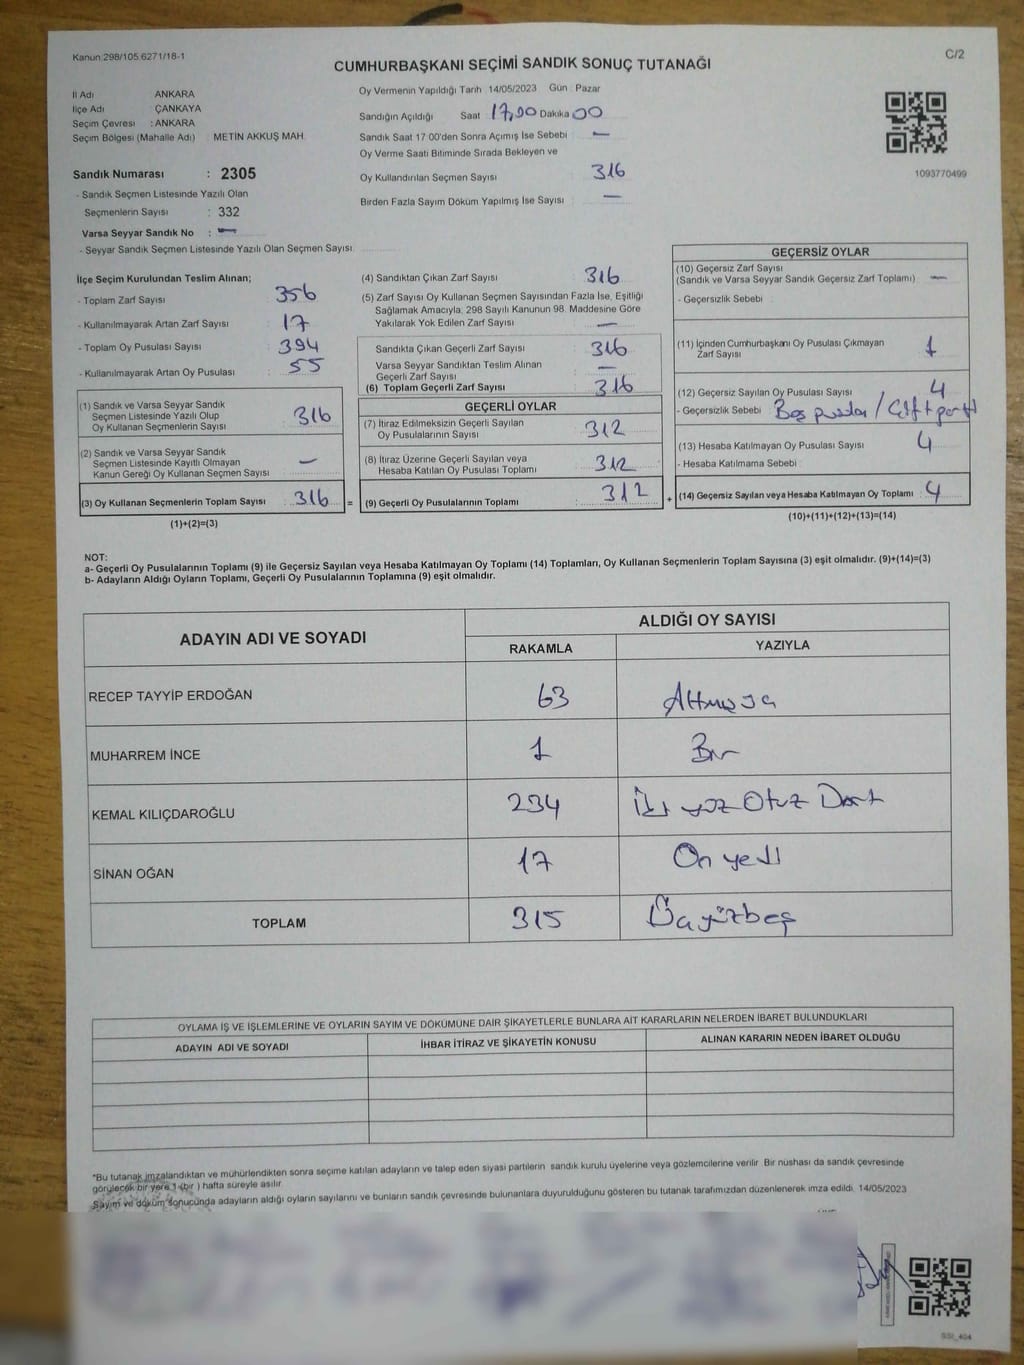 Kanun:298/105 6271/18-1
C/2
CUMHURBAŞKANI SEÇİMİ SANDIK SONUÇ TUTANAĞI
İl Adı ANKARA
İlçe Adı ÇANKAYA
Seçim Çevresi : ANKARA
Seçim Bölgesi (Mahalle Adı) METİN AKKUŞ MAH.
Sandık Numarası : 2305
- Sandık Seçmen Listesinde Yazılı Olan
Seçmenlerin Sayısı : 332
Varsa Seyyar Sandık No : —
- Seyyar Sandık Seçmen Listesinde Yazılı Olan Seçmen Sayısı
Oy Vermenin Yapıldığı Tarih 14/05/2023 Gün Pazar
Sandığın Açıldığı Saat 17,00 Dakika 00
Sandık Saat 17 00'den Sonra Açımış İse Sebebi —
Oy Verme Saati Bitiminde Sırada Bekleyen ve
Oy Kullandırılan Seçmen Sayısı 316
Birden Fazla Sayım Döküm Yapılmış İse Sayısı —
1093770499
İlçe Seçim Kurulundan Teslim Alınan;
- Toplam Zarf Sayısı : 356
- Kullanılmayarak Artan Zarf Sayısı : 17
- Toplam Oy Pusulası Sayısı : 394
- Kullanılmayarak Artan Oy Pusulası : 55
(1) Sandık ve Varsa Seyyar Sandık
Seçmen Listesinde Yazılı Olup
Oy Kullanan Seçmenlerin Sayısı : 316
(2) Sandık ve Varsa Seyyar Sandık
Seçmen Listesinde Kayıtlı Olmayan
Kanun Gereği Oy Kullanan Seçmen Sayısı : —
(3) Oy Kullanan Seçmenlerin Toplam Sayısı : 316 =
(1)+(2)=(3)
(4) Sandıktan Çıkan Zarf Sayısı : 316
(5) Zarf Sayısı Oy Kullanan Seçmen Sayısından Fazla İse, Eşitliği
Sağlamak Amacıyla; 298 Sayılı Kanunun 98. Maddesine Göre
Yakılarak Yok Edilen Zarf Sayısı : —
Sandıkta Çıkan Geçerli Zarf Sayısı : 316
Varsa Seyyar Sandıktan Teslim Alınan
Geçerli Zarf Sayısı : —
(6) Toplam Geçerli Zarf Sayısı : 316
GEÇERLİ OYLAR
(7) İtiraz Edilmeksizin Geçerli Sayılan
Oy Pusulalarının Sayısı : 312
(8) İtiraz Üzerine Geçerli Sayılan veya
Hesaba Katılan Oy Pusulası Toplamı : 312
(9) Geçerli Oy Pusulalarının Toplamı : 312 +
GEÇERSİZ OYLAR
(10) Geçersiz Zarf Sayısı
(Sandık ve Varsa Seyyar Sandık Geçersiz Zarf Toplamı) : —
- Geçersizlik Sebebi :
(11) İçinden Cumhurbaşkanı Oy Pusulası Çıkmayan
Zarf Sayısı : 1
(12) Geçersiz Sayılan Oy Pusulası Sayısı : 4
- Geçersizlik Sebebi Boş pusula / Çift parti
(13) Hesaba Katılmayan Oy Pusulası Sayısı : 4
- Hesaba Katılmama Sebebi :
(14) Geçersiz Sayılan veya Hesaba Katılmayan Oy Toplamı : 4
(10)+(11)+(12)+(13)=(14)
NOT:
a- Geçerli Oy Pusulalarının Toplamı (9) ile Geçersiz Sayılan veya Hesaba Katılmayan Oy Toplamı (14) Toplamları, Oy Kullanan Seçmenlerin Toplam Sayısına (3) eşit olmalıdır. (9)+(14)=(3)
b- Adayların Aldığı Oyların Toplamı, Geçerli Oy Pusulalarının Toplamına (9) eşit olmalıdır.
ADAYIN ADI VE SOYADI
ALDIĞI OY SAYISI
RAKAMLA YAZIYLA
RECEP TAYYİP ERDOĞAN 63 Altmışüç
MUHARREM İNCE 1 Bir
KEMAL KILIÇDAROĞLU 234 İki yüz Otuz Dört
SİNAN OĞAN 17 On yedi
TOPLAM 315 Üçyüzbeş
OYLAMA İŞ VE İŞLEMLERİNE VE OYLARIN SAYIM VE DÖKÜMÜNE DAİR ŞİKAYETLERLE BUNLARA AİT KARARLARIN NELERDEN İBARET BULUNDUKLARI
ADAYIN ADI VE SOYADI İHBAR İTİRAZ VE ŞİKAYETİN KONUSU ALINAN KARARIN NEDEN İBARET OLDUĞU
*Bu tutanak imzalandıktan ve mühürlendikten sonra seçime katılan adayların ve talep eden siyasi partilerin sandık kurulu üyelerine veya gözlemcilerine verilir. Bir nüshası da sandık çevresinde
görülecek bir yere 1 (bir ) hafta süreyle asılır.
Sayım ve döküm sonucunda adayların aldığı oyların sayılarını ve bunların sandık çevresinde bulunanlara duyurulduğunu gösteren bu tutanak tarafımızdan düzenlenerek imza edildi. 14/05/2023
SSI_404